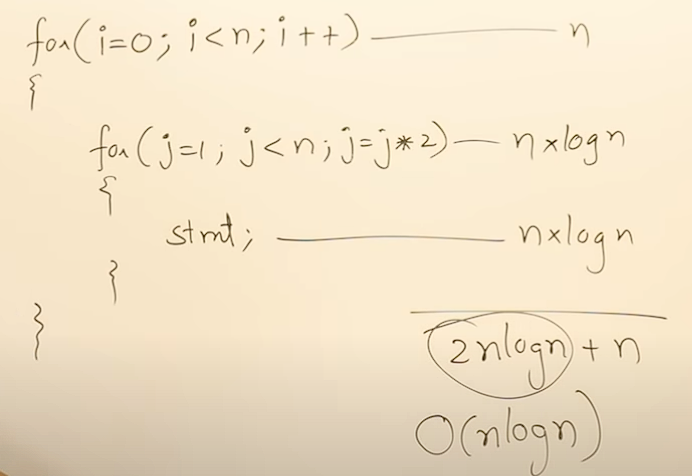 for(i=0; i<n; i++) — n
{
for(j=1; j<n; j=j*2) — n×logn
{
stmt; — n×logn
}
}
2nlogn + n
O(nlogn)